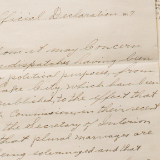 Official Declaration
it may Concern
dispatches having been
political purposes, from
Lake City, which have been
published, to the effect that
Commission, in their recent
the Secretary of Interior
that plural marriages are
being solemnized and that